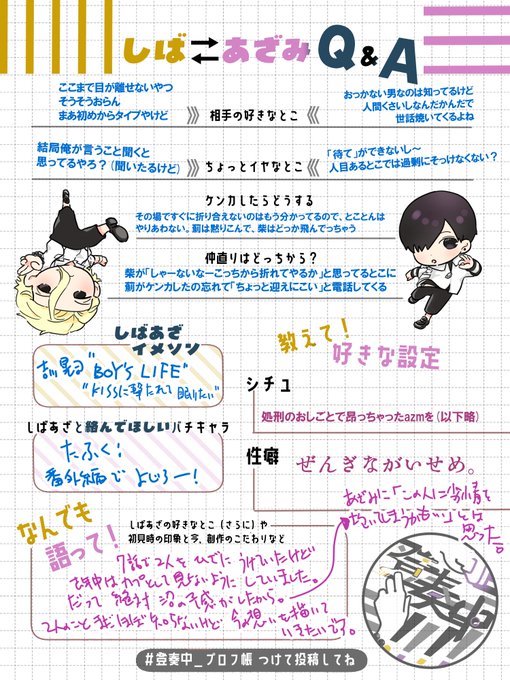 しば⇄あざみ Q&A
ここまで目が離せないやつ
そうそうおらん
まあ初めからタイプやけど
相手の好きなとこ
おっかない男なのは知ってるけど
人間くさいしなんだかんだで
世話焼いてくるよね
結局俺が言うこと聞くと
思ってるやろ？（聞いたるけど）
ちょっとイヤなとこ
「待て」ができないし～
人目あるとこでは過剰にそっけなくない？
ケンカしたらどうする
その場ですぐに折り合えないのはもう分かってるので、とことんは
やりあわない。薊は黙りこんで、柴はどっか飛んでっちゃう
仲直りはどっちから？
柴が「しゃーないなーこっちから折れてやるか」と思ってるとこに
薊がケンカしたの忘れて「ちょっと迎えにこい」と電話してくる
しばあざ
イメソン
吉川晃司
"BOY'S LIFE"
"KISSに撃たれて眠りたい"
しばあざと絡んでほしいバチキャラ
たふく:
番外編で よしろー!
教えて!
好きな設定
シチュ
処刑のおしごとで昂っちゃったazmを（以下略）
性癖
ぜんぎながいせめ。
あざみに「この人に劣情を
とは
思った。
なんでも
語って!
しばあざの好きなとこ（さらに）や
初見時の印象と今、創作のこだわりなど
7話で2人をひでにうけていたけど
見ないようにしていました。
だって絶対沼の予感がしたから。
2人のことまだほぼ知らないけど 今の想いを描いて
いきたいです。
登奏中
#登奏中_プロフ帳 つけて投稿してね